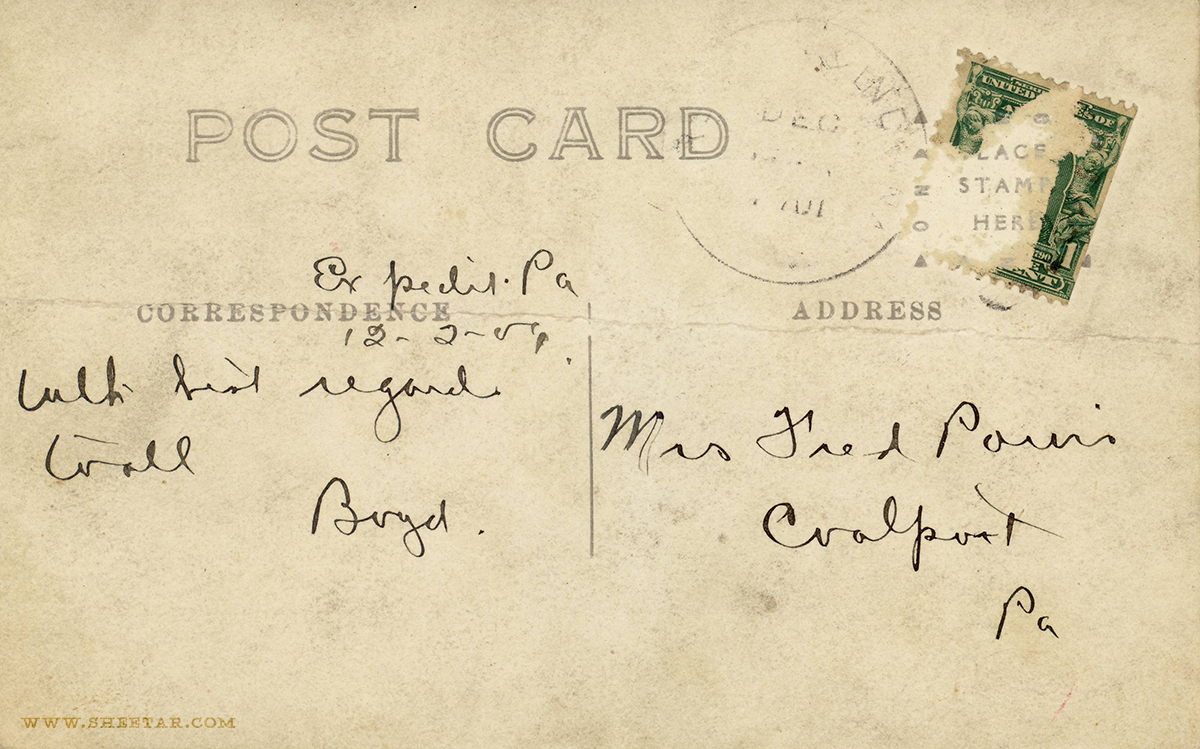 POST CARD
DEC
PLACE
STAMP
HERE
UNITED STATES OF
1
Expedit. Pa
CORRESPONDENCE
ADDRESS
12-2-07
With best regards
to all
Boyd.
Mrs Fred Powis
Coalport
Pa
WWW.SHEETAR.COM